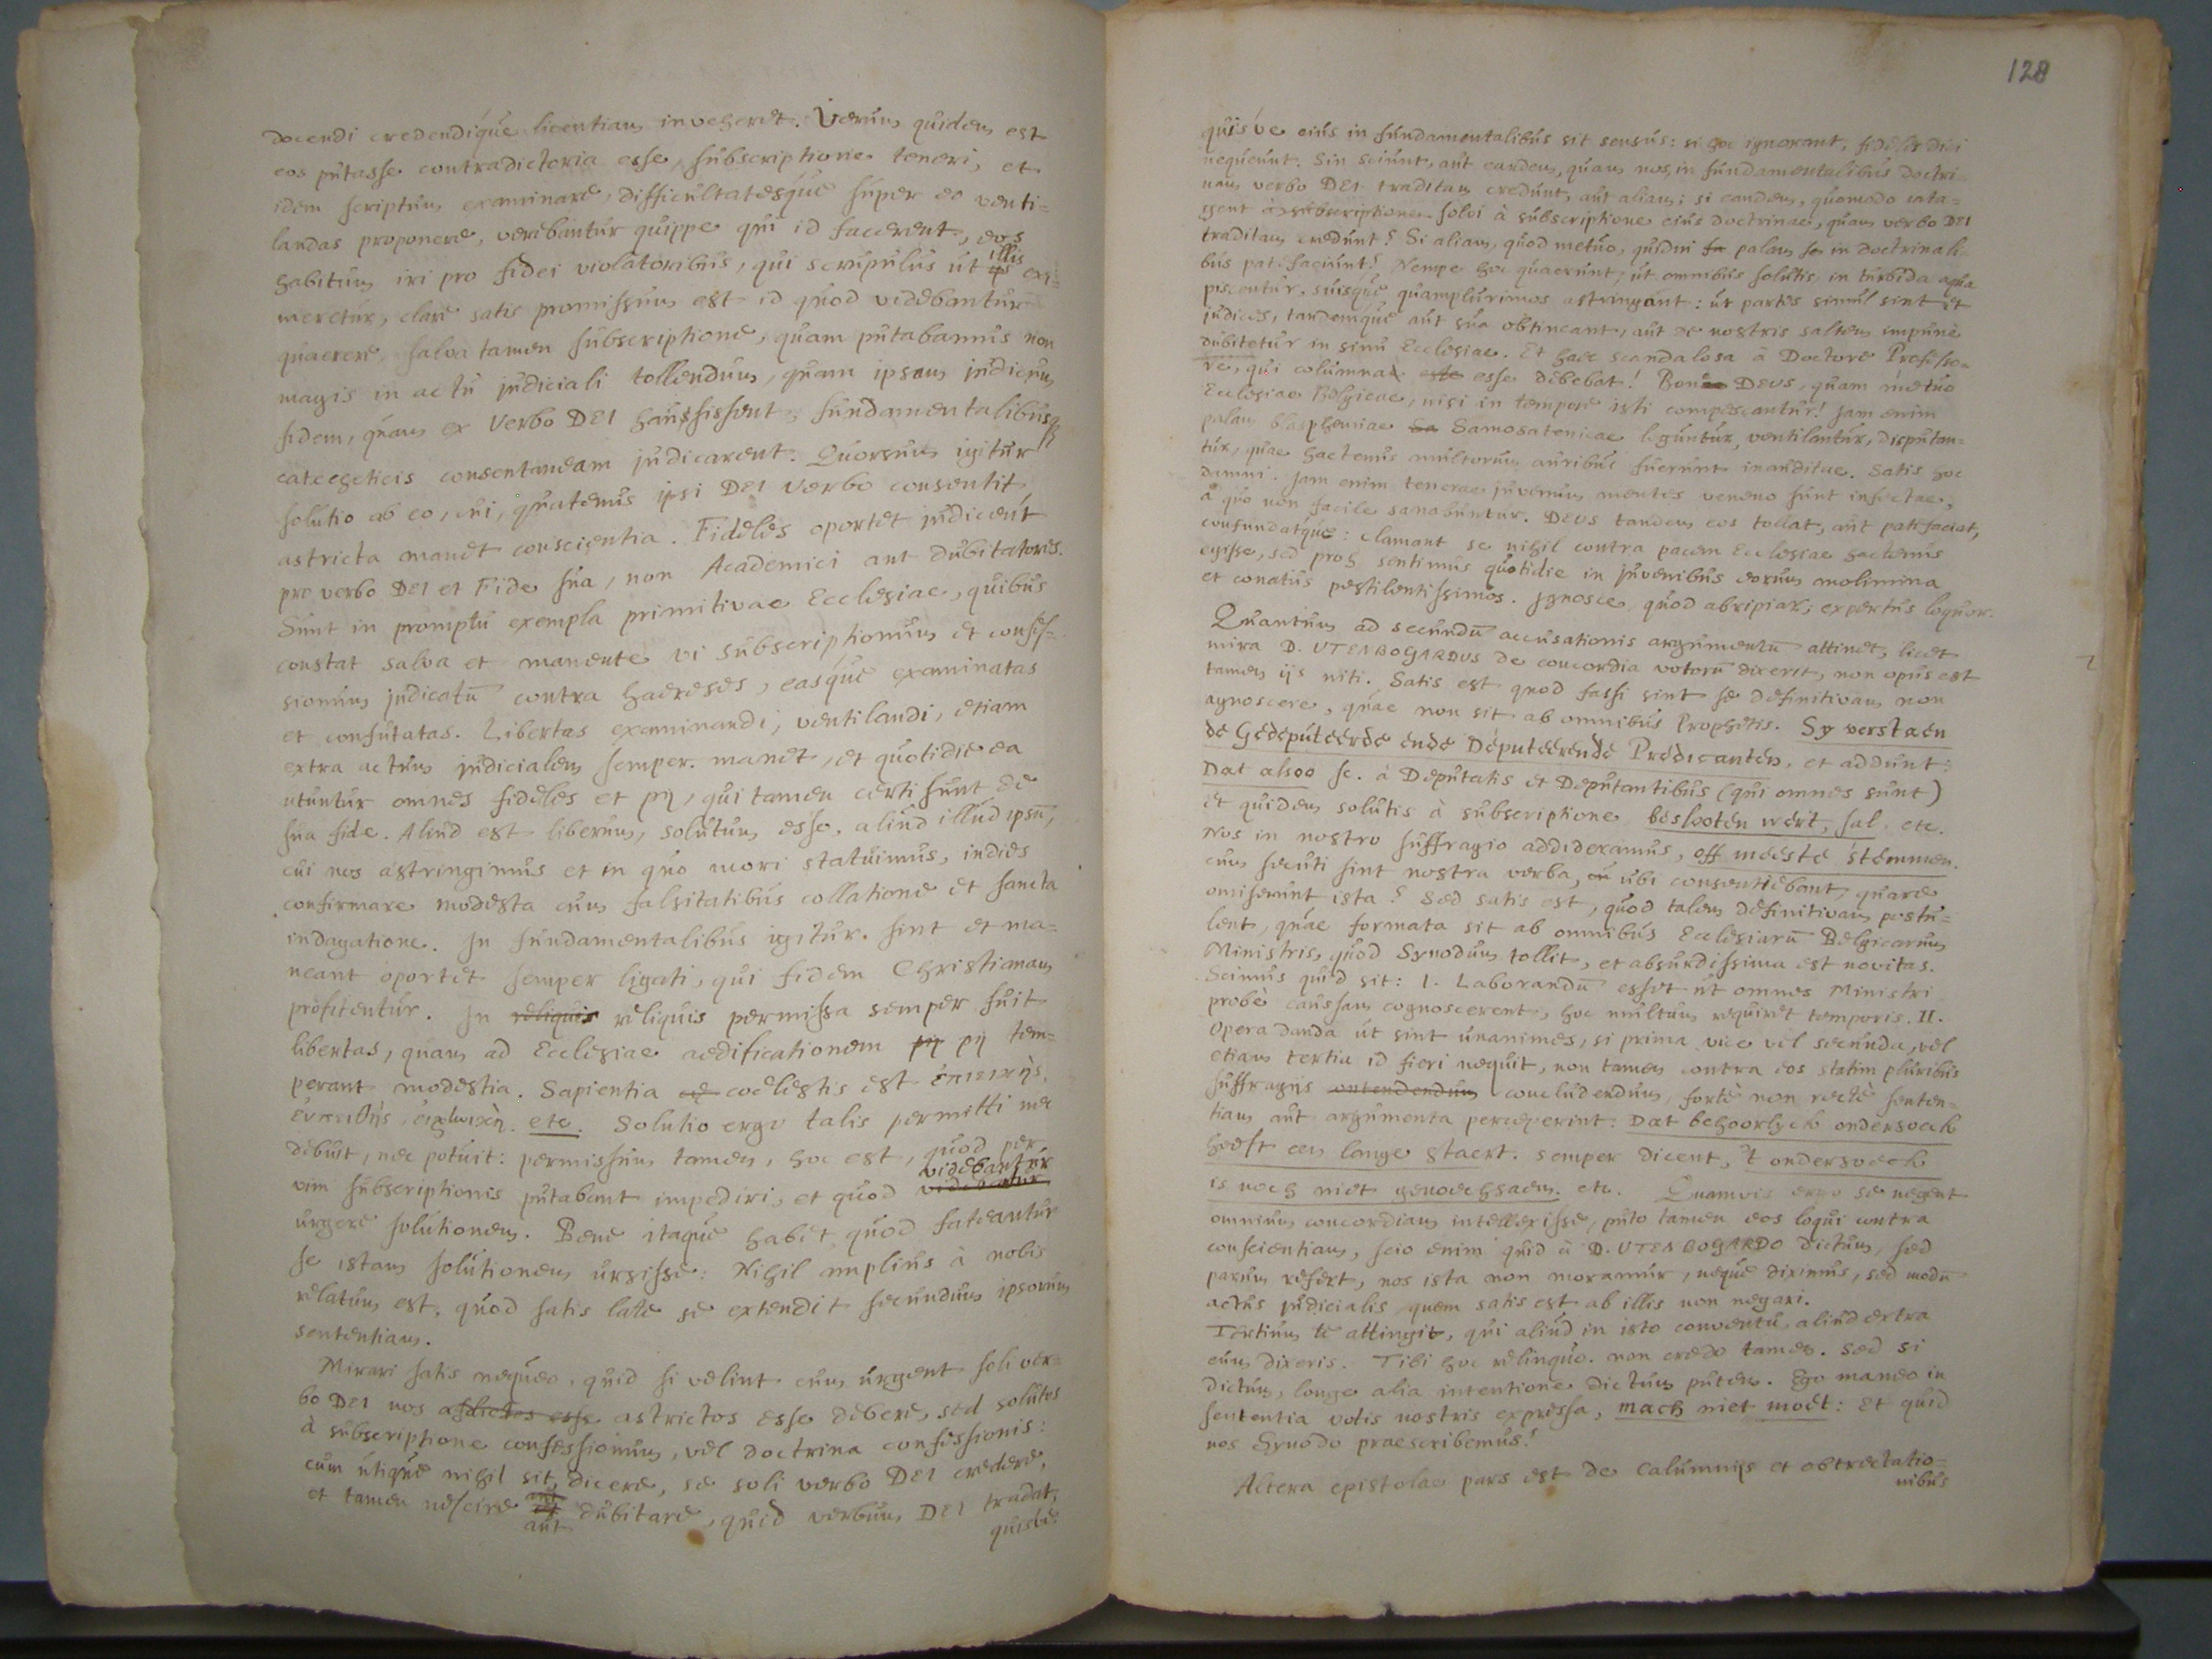 docendi credendique licentiam inveheret. Verum quidem est
eos putasse contradictoria esse, subscriptione teneri, et
idem scriptum examinare, difficultatesque super eo venti=
landas proponere, verebantur quippe qui id facerent, eos
habitum iri pro fidei violatoribus, qui scrupulus ut illis exi=
meretur, clare satis promissum est id quod videbantur
quaerere, salva tamen subscriptione, quam putabamus non
magis in actu judiciali tollendum, quam ipsam judicum
fidem, quam ex Verbo DEI haussissent, fundamentalibusque
catecheticis consentaneam judicarent. Quorsum igitur
solutio ab eo, cui, quatenus ipsi DEI Verbo consentit,
astricta manet conscientia. Fideles oportet judicent
pro verbo DEI et Fide sua, non Academici aut dubitatores.
Sunt in promptu exempla primitivae Ecclesiae, quibus
constat salva et manente vi subscriptionum et confes=
sionum judicatū contra haereses, easque examinatas
et confutatas. Libertas examinandi, ventilandi, etiam
extra actum judicialem semper manet, et quotidie ea
utuntur omnes fideles et pij, qui tamen certi sunt de
sua fide. Aliud est liberum, solutum esse, aliud illud ipsū,
cui nos astringimus et in quo mori statuimus, indies
confirmare modesta cum falsitatibus collatione et sancta
indagatione. In fundamentalibus igitur sint et ma=
neant oportet semper ligati, qui fidem Christianam
profitentur. In reliquis reliquis permissa semper fuit
libertas, quam ad Ecclesiae aedificationem pij pij tem=
perant modestia. Sapientia coelestis est ἐπιεικὴς,
εὐπειθὴς, εἰρηνικὴ. etc. Solutio ergo talis permitti nec
debuit, nec potuit: permissum tamen, hoc est, quod per
vim subscriptionis putabant impediri, et quod videbatur videbantur
urgere solutionem. Bene itaque habet, quod fateantur
se istam solutionem ursisse: Nihil amplius à nobis
relatum est, quod satis late se extendit secundum ipsorum
sententiam.
Mirari satis nequeo, quid si velint cum urgent soli ver=
bo DEI nos astrictos esse debere, sed solutos
à subscriptione confessionum, vel doctrina confessionis:
cum utique nihil sit, dicere, se soli verbo DEI credere,
et tamen nescire aut dubitare, quid verbum DEI tradat,
quisve
128
quisve eius in fundamentalibus sit sensus: si hoc ignorant, fideles dici
nequeunt. Sin sciunt, aut eandem, quam nos in fundamentalibus doctri=
nam verbo DEI traditam credunt, aut aliam; si eandem, quomodo sata=
gent solvi à subscriptione eius doctrinae, quam verbo DEI
traditam credunt? Si aliam, quod metuo, quidni palam in doctrinali=
bus patefaciunt? Nempe hoc quaerunt, ut omnibus solutis in turbida aqua
piscentur, suisque quamplurimos astringant: ut partes simul sint et
judices, tandemque aut sua obtineant, aut de nostris saltem impune
dubitetur in sinu Ecclesiae. Et haec scandalosa à Doctore Professo=
re, qui columna esse debebat! Bone DEUS, quam metuo
Ecclesiae Belgicae, nisi in tempore isti compescantur! Jam enim
palam blasphemiae Samosatenicae leguntur, ventilantur, disputan=
tur, quae hactenus multorum auribus fuerunt inauditae. Satis hoc
damni. Jam enim tenerae juvenum mentes veneno sunt infectae,
à quo non facile sanabuntur. DEUS tandem eos tollat, aut patefaciat,
confundatque: clamant se nihil contra pacem Ecclesiae hactenus
egisse, sed proh sentimus quotidie in juvenibus eorum molimina
et conatus pestilentissimos. Ignosce, quod abripiar; expertus loquor.
Quantum ad secundū accusationis argumentū attinet, licet
mira D. UTENBOGARDUS de concordia votorū dixerit, non opus est
tamen ijs niti. Satis est quod fassi sint se definitivam non
agnoscere, quae non sit ab omnibus Prophetis. Sy verstaen
de Gedeputeerde ende Deputeerende Predicanten, et addunt:
Dat alsoo sc. à Deputatis et Deputantibus (qui omnes sunt)
et quidem solutis à subscriptione besloten wert, sal. etc.
Nos in nostro suffragio addideramus, off meeste stemmen.
cum secuti sint nostra verba, ubi consentiebant, quare
omiserunt ista? Sed satis est, quod talem definitivam postu=
lent, quae formata sit ab omnibus Ecclesiarū Belgicarum
Ministris, quod Synodum tollit, et absurdissima est novitas.
Scimus quid sit: I. Laborandū esset ut omnes Ministri
probè caussam cognoscerent, hoc multum requiret temporis. II.
Opera danda ut sint unanimes, si prima vice vel secunda, vel
etiam tertia id fieri nequit, non tamen contra eos statim pluribus
suffragijs contendendum concludendum, fortè non rectè senten=
tiam aut argumenta perceperint. Dat behoorlyck ondersoeck
heeft een lange staert. semper dicent, 't ondersoeck
is noch niet genoechsaem. etc. Quamvis ergo se negent
omnium concordiam intellexisse, puto tamen eos loqui contra
conscientiam, scio enim quid à D. UTENBOGARDO dictum, sed
parum refert, nos ista non moramur, neque diximus, sed modū
actus judicialis quem satis est ab illis non negari.
Tertium te attingit, qui aliud in isto conventu, aliud extra
eum dixeris. Tibi hoc relinquo. non credo tamen. Sed si
dictum, longe alia intentione dictum putem. Ego maneo in
sententia votis nostris expressa, mach niet moet: Et quid
nos Synodo praescribemus?
Altera epistolae pars est de Calumnijs et obtrectatio=
nibus